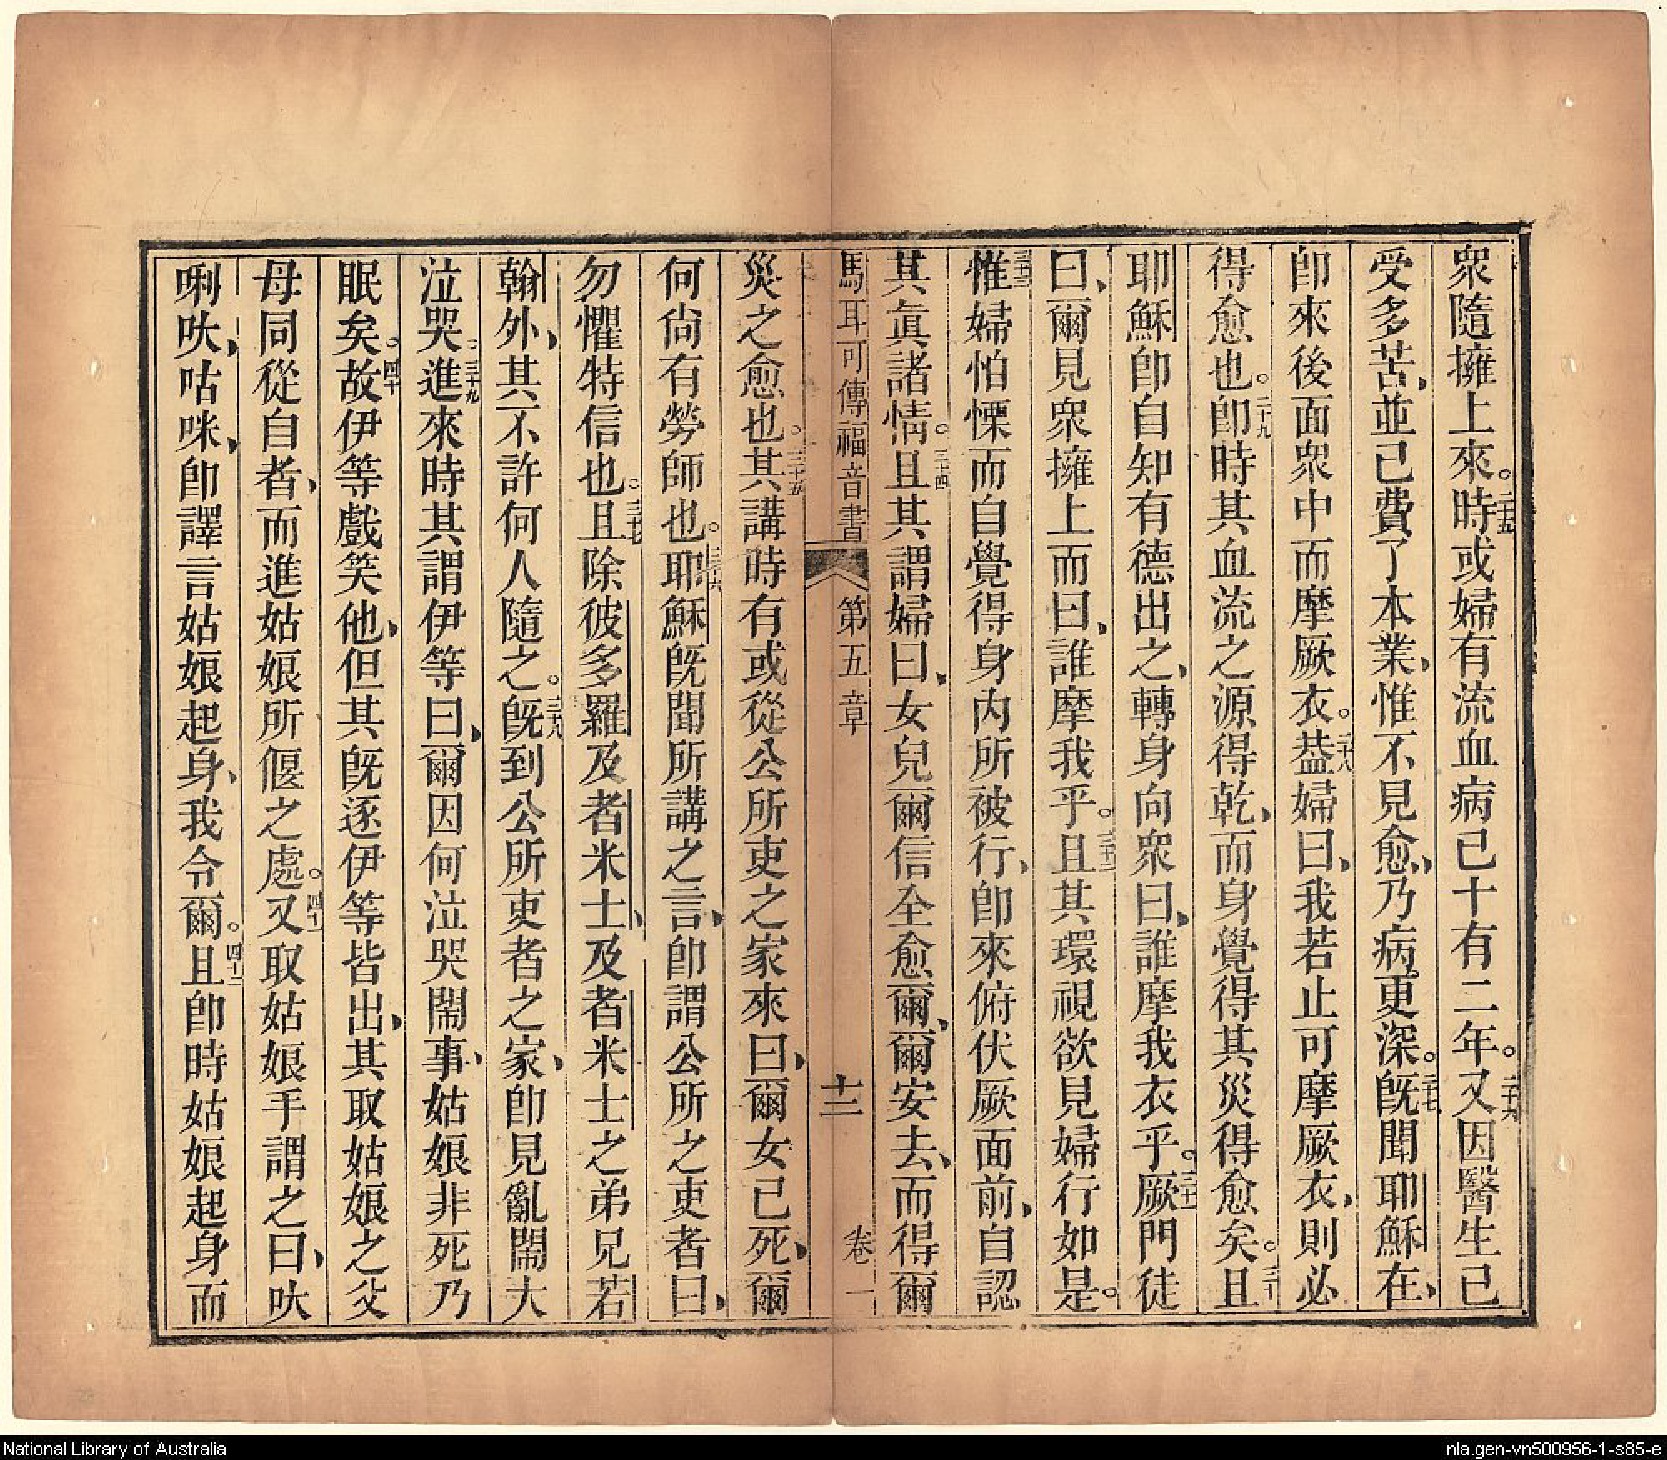 衆隨擁上來。二十五時或婦有流血病已十有二年。二十六又因醫生已
受多苦、並已費了本業、惟不見愈、乃病更深。二十七旣聞耶穌在、
卽來後面衆中而摩厥衣。二十八葢婦曰、我若止可摩厥衣、則必
得愈也。二十九卽時其血流之源得乾、而身覺得其災得愈矣。三十且
耶穌卽自知有德出之、轉身向衆曰、誰摩我衣乎。三十一厥門徒
曰、爾見衆擁上而曰、誰摩我乎。三十二且其環視欲見婦行如是。
三十三惟婦怕慄而自覺得身內所被行、卽來俯伏厥面前、自認
其眞諸情。三十四且其謂婦曰、女兒爾信全愈爾、爾安去、而得爾
馬耳可傳福音書 第五章 十二 卷一
災之愈也。三十五其講時有或從公所吏之家來曰、爾女已死、爾
何尙有勞師也。三十六耶穌旣聞所講之言、卽謂公所之吏者曰、
勿懼特信也。三十七且除彼多羅及者米士、及者米士之弟兄若
翰外、其不許何人隨之。三十八旣到公所吏者之家、卽見亂鬧大
泣哭。三十九進來時其謂伊等曰、爾因何泣哭鬧事、姑娘非死乃
眠矣。四十故伊等戲笑他、但其旣逐伊等皆出、其取姑娘之父
母同從自者、而進姑娘所偃之處。四十一又取姑娘手謂之曰、吙
唎吙、咕咪、卽譯言姑娘起身、我令爾。四十二且卽時姑娘起身而
National Library of Australia
nla.gen-vn500956-1-s85-e